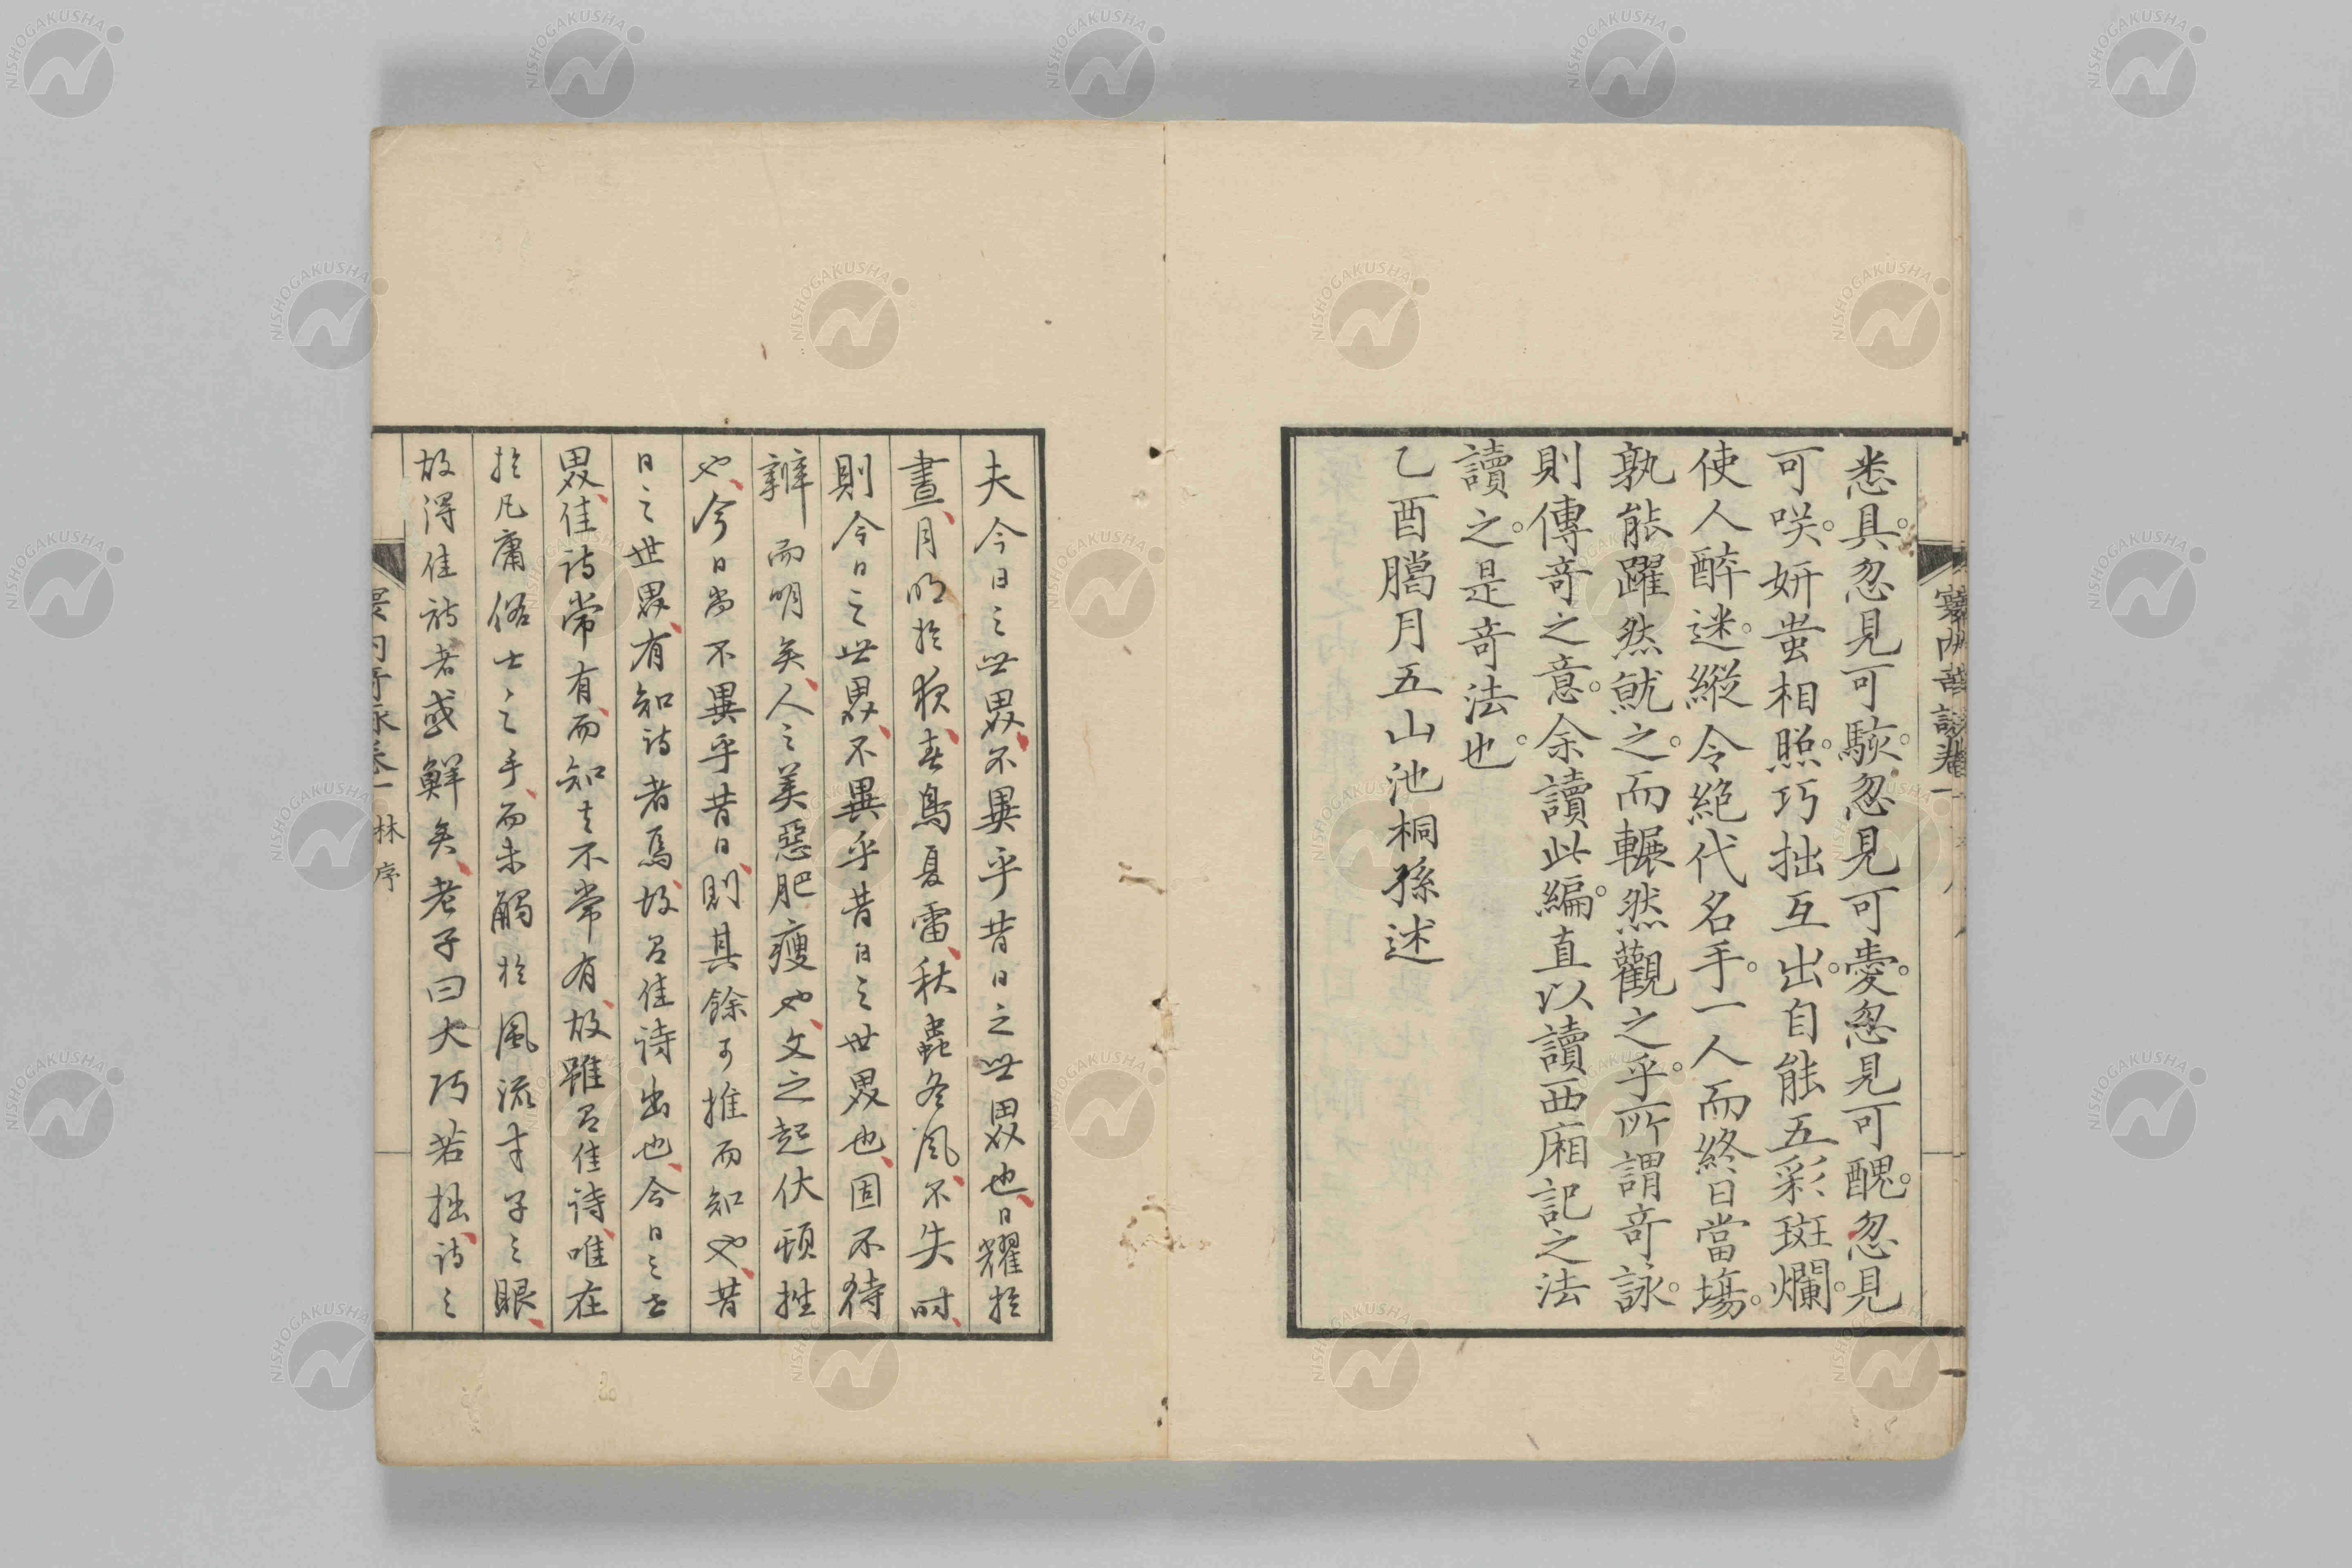 悉具。忽見可駭。忽見可愛。忽見可醜。忽見
可咲。妍蚩相照。巧拙互出。自能五彩斑爛。
使人醉迷。縱令絶代名手。一人而終日當場。
孰能躍然觥之。而輾然觀之乎。所謂奇詠。
則傳奇之意。余讀此編。直以讀西廂記之法
讀之。是奇法也。
乙酉臈月五山池桐孫述
夫今日之世界、不異乎昔日之世界也、日耀於
晝、月明於夜、春鳥夏雷、秋蟲冬風、不失時、
則今日之世界、不異乎昔日之世界也、固不待
辨而明矣、人之美惡肥瘦也、文之起伏頓挫
也、今日尚不異乎昔日、則其餘可推而知也、昔
日之世界、有知詩者焉、故有佳詩出也、今日之世
界、佳詩常有、而知者不常有、故雖有佳詩、唯在
於凡庸俗士之手、而未觸於風流才子之眼、
故得佳詩者或鮮矣、老子曰大巧若拙、詩之
林序
NISHOGAKUSHA